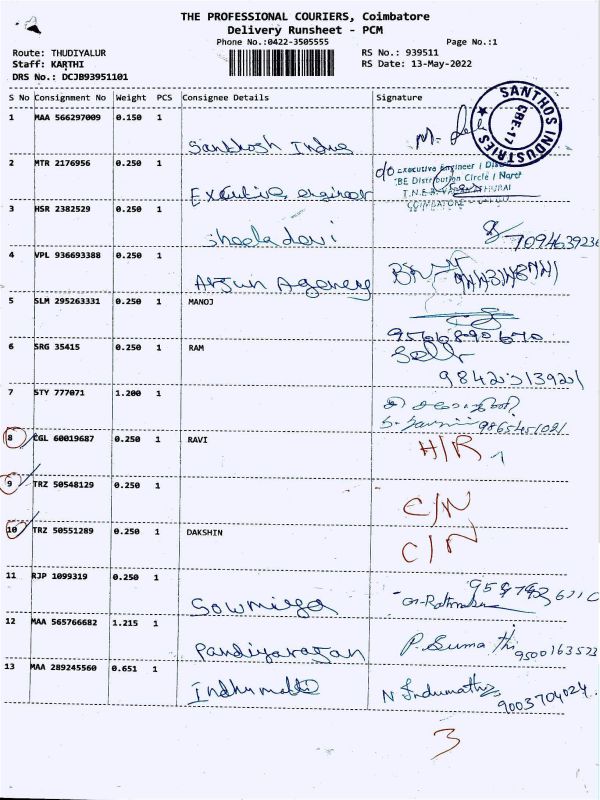 THE PROFESSIONAL COURIERS, Coimbatore
Delivery Runsheet - PCM
Phone No.:0422-3505555
Page No.:1
Route: THUDIYALUR
Staff: KARTHI
DRS No.: DCJB93951101
RS No.: 939511
RS Date: 13-May-2022
S No Consignment No Weight PCS Consignee Details Signature
1 MAA 566297009 0.150 1 Santhosh Indus
SANTHOS INDUSTRIES CBE-17
2 MTR 2176956 0.250 1 Executive engineer
Executive Engineer
Distribution Circle
3 HSR 2382529 0.250 1 Sheeladevi
7094639236
4 VPL 936693388 0.250 1 Arjun Agencey
5 SLM 295263331 0.250 1 MANOJ
9566890670
6 SRG 35415 0.250 1 RAM
7 STY 777071 1.200 1
9865451021
8 CGL 60019687 0.250 1 RAVI H/R
9 TRZ 50548129 0.250 1 C/N
10 TRZ 50551289 0.250 1 DAKSHIN C/N
11 RJP 1099319 0.250 1 Sowmiya
12 MAA 565766682 1.215 1 Pandiyarajan P. Sumathi
9500163523
13 MAA 289245560 0.651 1 Indhumathi N Indumathi
9003704024
3